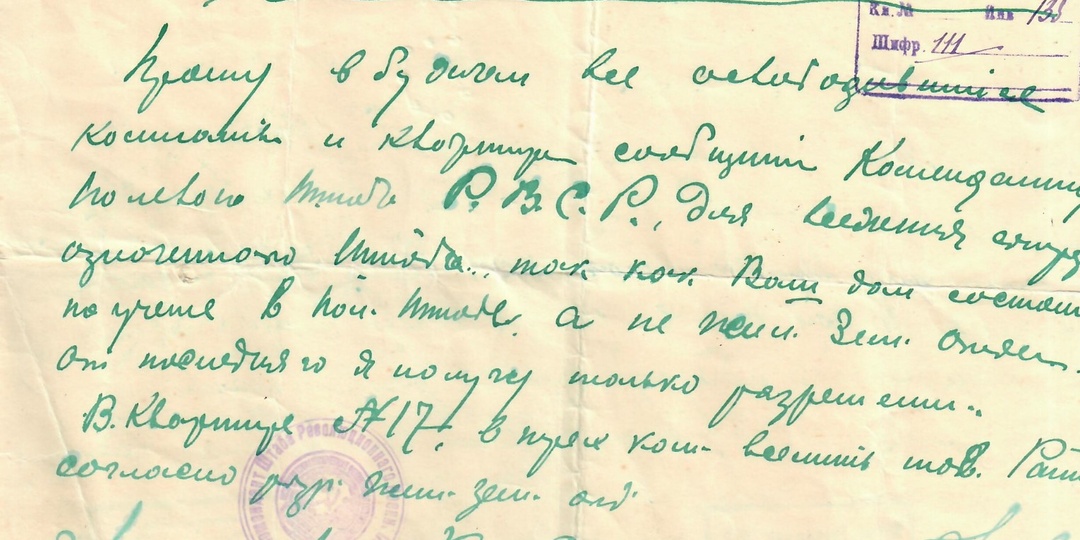 Кн. № Инв 138
Шифр. 111
Прошу в будучем все освободившиеся
комнаты и квартиры сообщить Коменданту
Полевого Штаба Р.В.С.Р., для вселения
означенного Штаба.. так как Ваш дом состоит
на учете в Пол. Штабе, а не Жил. Зем. Отдел.
От последнего я получу только разрешени..
В. Квартире №17, в трех ком. вселить тов.
согласно разр. жил. зем. отд.
Штаба Революционного